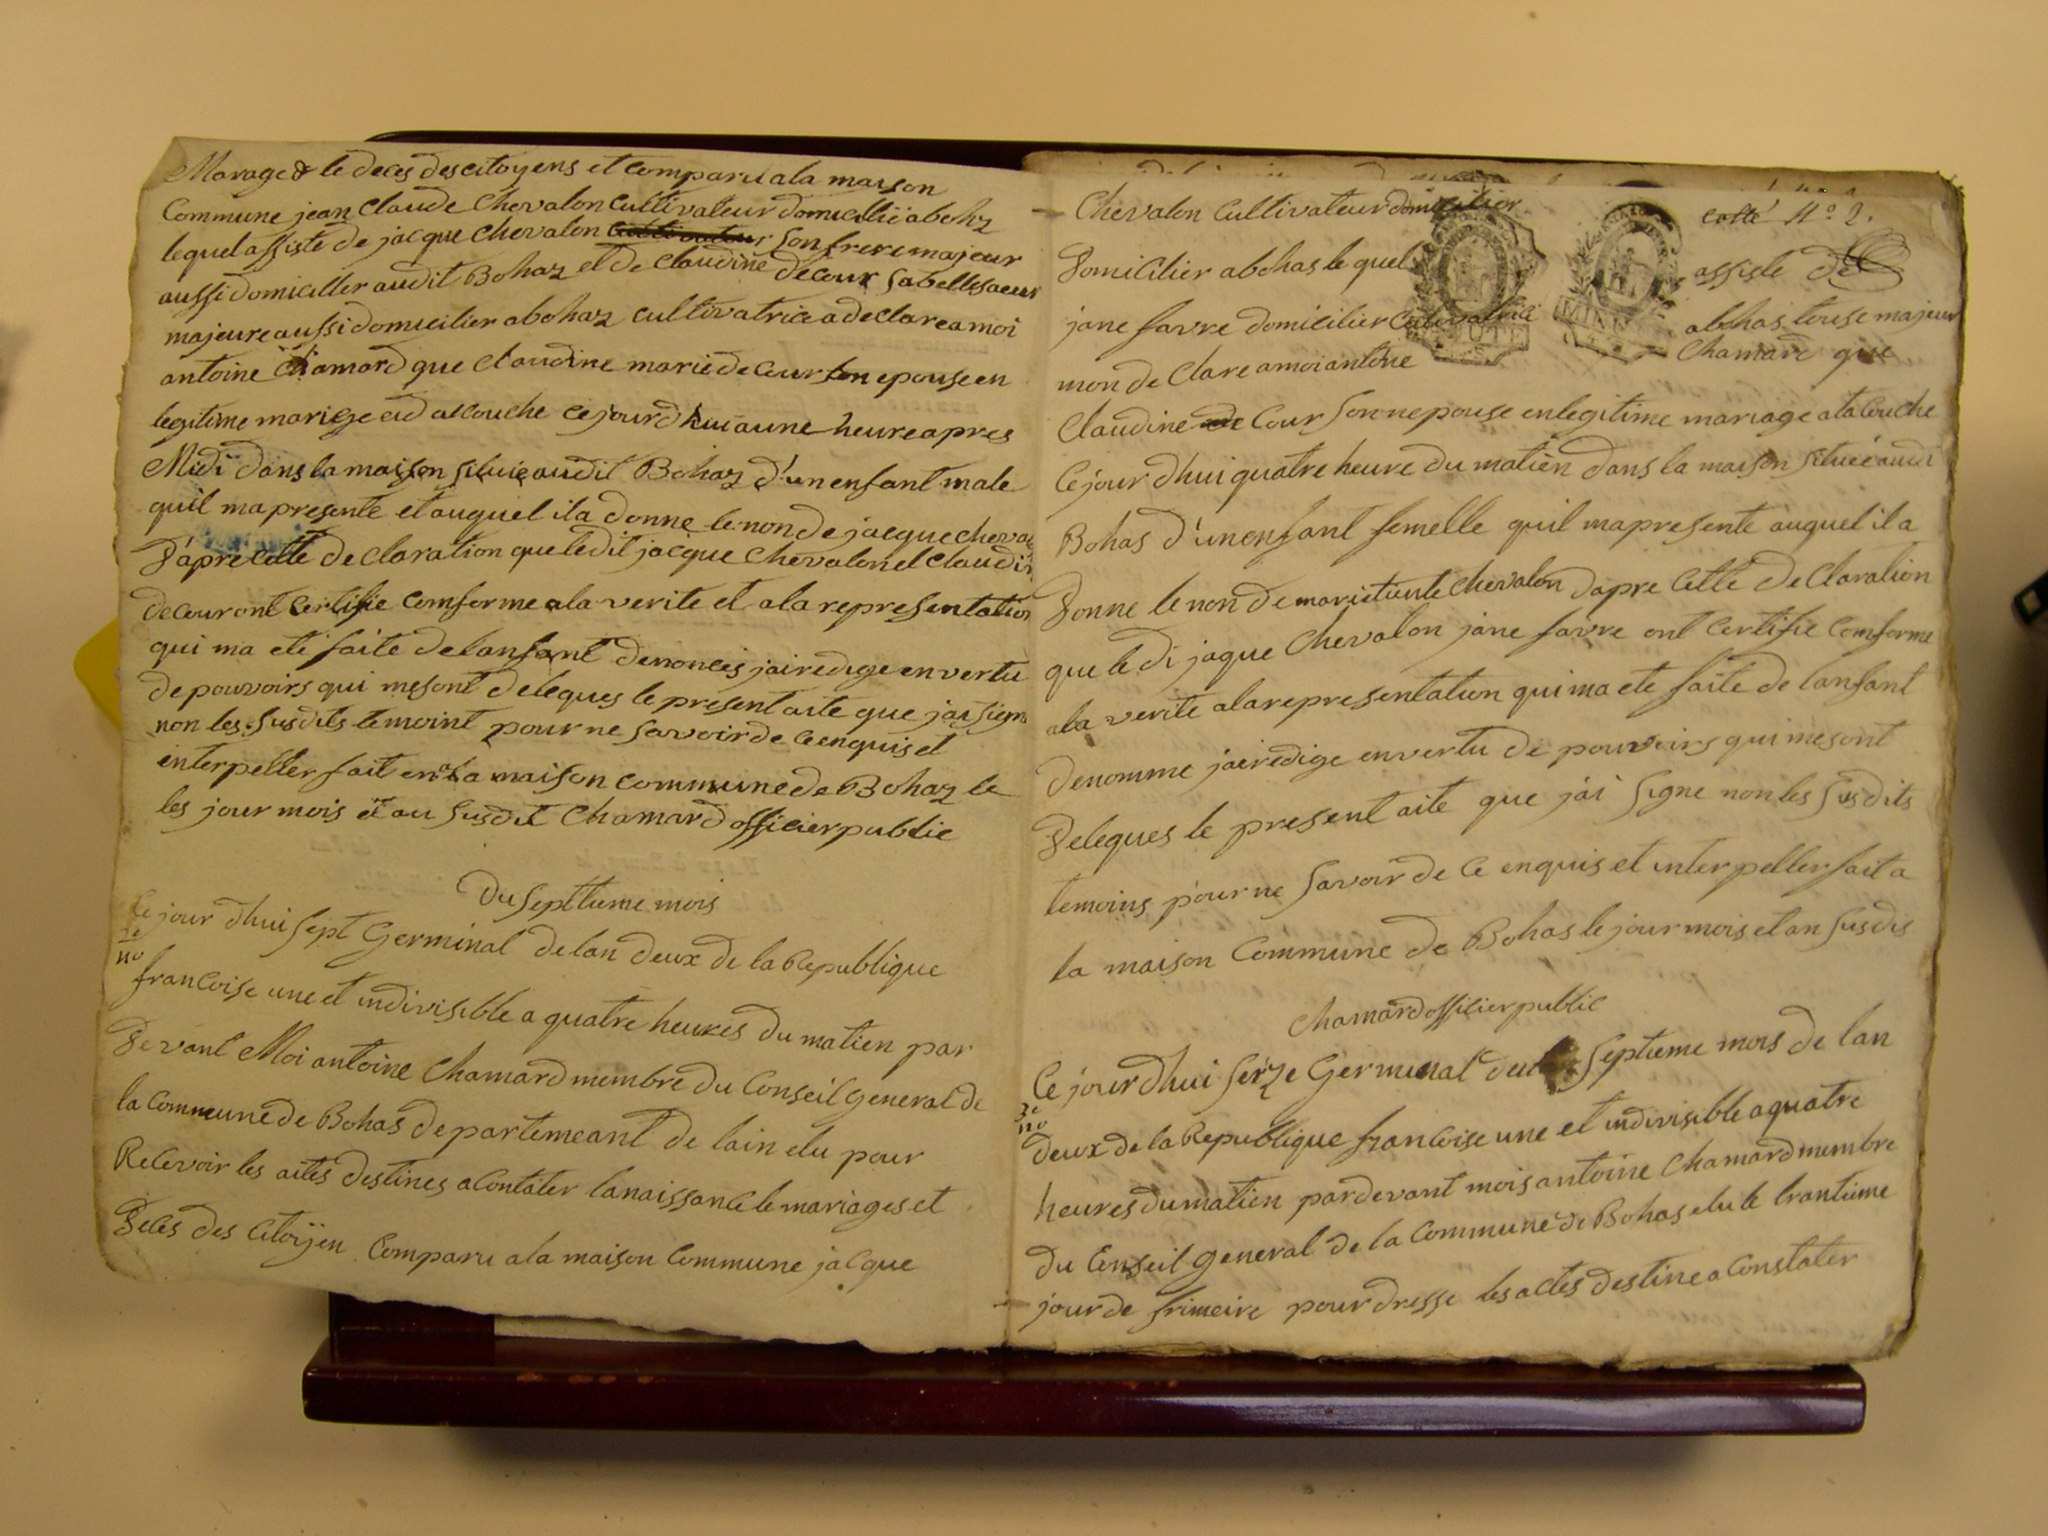 Marage & le deces des citoyens et comparu ala maison
Commune jean Claude Chevalon Cultivateur domicillié abohz
lequel assiste de jacque Chevalon son frere majeur
aussi domiciller audit Bohaz et de claudine decour sabellesaeur
majeure aussi domicilier abohaz cultivatrice adeclare amoi
antoine chamard que claudine marie decour son epouse en
legitime mariege aid accouche cejourdhui aune heure apres
Midi dans la maison situie audit Bohaz d'un enfant male
quil mapresente et auquel ila donne lenon de jacque cheva
d'apre cette declaration queledit jacque chevalon et claudi
decour ont certifie comforme ala verite et ala representation
qui ma eté faite delanfant denonceis jairedige en vertu
depouvoirs qui mesont deleques le present aite que jai signe
non les susdits temoint pour ne savoir de ceenquis et
interpeller fait en la maison commune de Bohaz le
les jour mois et au susdit Chamard officier public
Du septtieme mois
Ce jour dhui sept Germinal delan deux de la Republique
2e
no
francoise une et indivisible a quatre heures du matien par
devant Moi antoine Chamard membre du Conseil general de
la Commeune de Bohas departemeant de lain elu pour
Recevoir les aites destines aContater lanaissance le mariages et
deces des Citoijen Comparu ala maison Commune jacque
cotté No 2.
Chevalon Cultivateur domicilier
domicilier abohas le quel assiste de
jane favre domicilier Cultivatrice abhas touse majeur
mon de Clare amoi antoine Chamard que
Claudine Cour sonnepouse enlegitime mariage ata Couche
Cejour dhui quatre heure du matien dans la maison situéé audi
Bohas d'unenfant femelle quil mapresente auquel il a
donne lenon de marietiente chevalon dapre Cette deClaration
que le di jaque Chevalon jane favre ont Certifie Comforme
ala verite alarepresentation qui ma ete faite de lanfant
denomme jairedige envertu de pouvoirs qui mesont
deleques le present aite que jai signe non les susdits
temoins pour ne savoir de Ce enquis et interpeller fait a
la maison Commune de Bohas le jour mois et an susdis
Chamard officier public
Ce jourdhui serze Germinal du septieme mois de lan
3e
no
deux de la Republique francoise une et indivisible aquatre
heures dumatien pardevant mois antoine Chamard membre
du Conseil general de la Commune de Bohas elu le trantieme
jour de frimeire pour dresse les actes destine a Constater